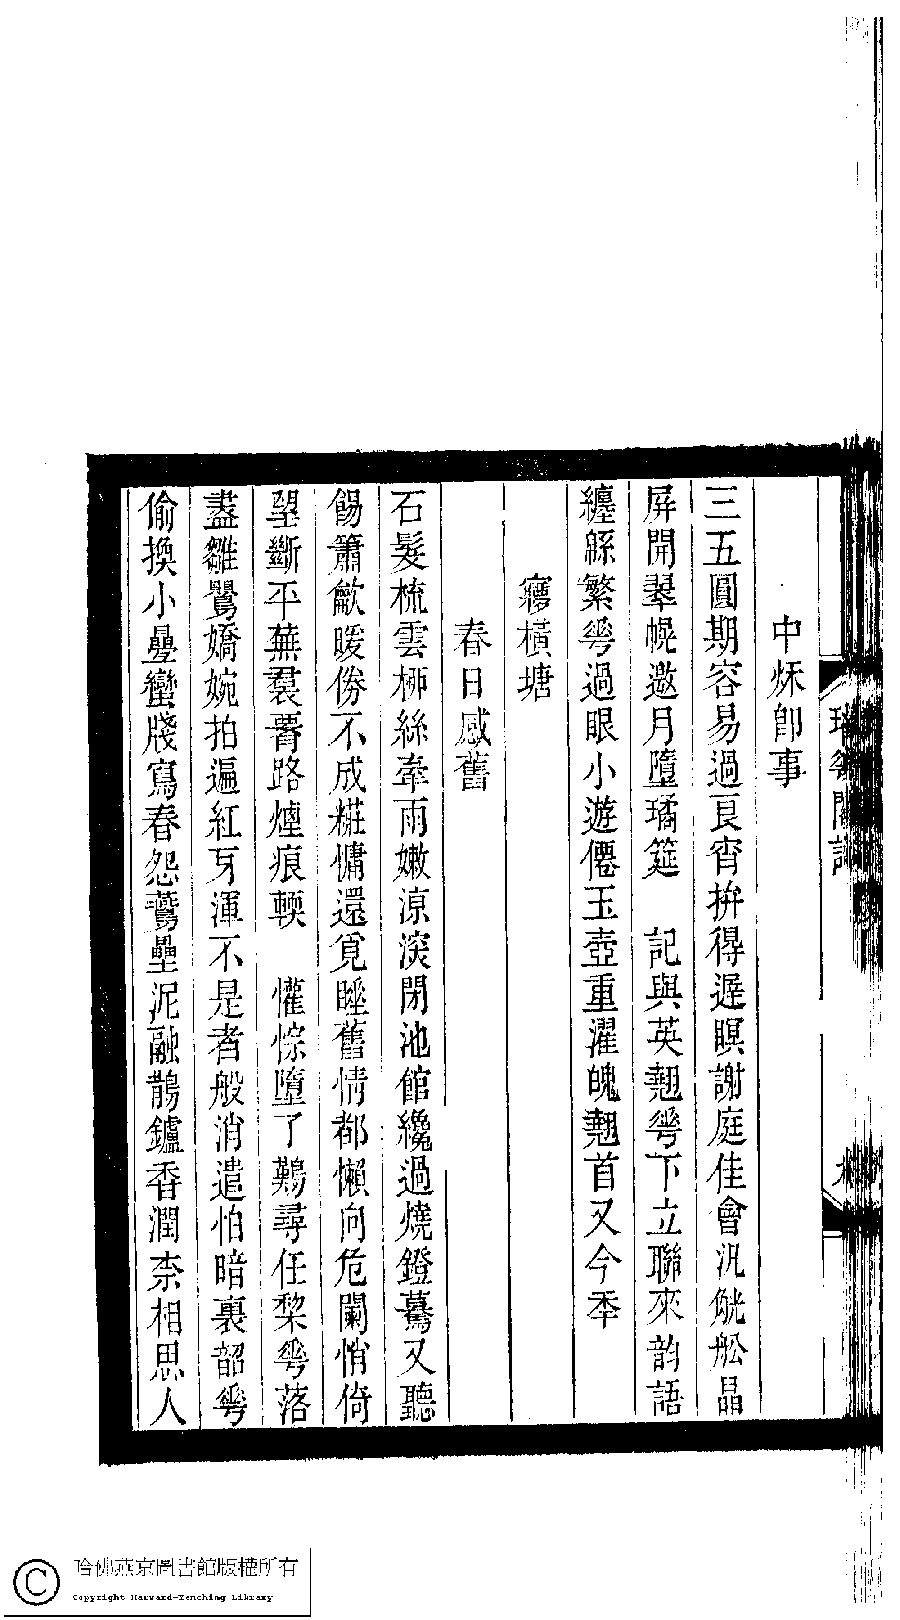 中秌卽事
三五圓期容易過良宵拚得遲瞑謝庭佳會汎觥舩晶
屏開翠幌邀月墮璚筵　記與英翹㕦下立聯來韵語
纏緜繁㕦過眼小遊僊玉壺重濯魄翹首又今秊
寱橫塘
春日感舊
石髮梳雲桺絲牽雨嫩涼深閉池館纔過燒鐙驀又聽
餳簫歈暖傍不成糚慵還覓睡舊情都懶向危闌悄倚
望斷平蕪裠署路煙痕輭　懽悰墮了難尋任棃㕦落
盡雛鶯嬌婉拍遍紅牙渾不是者般消遣怕暗裏韶㕦
偷換小疊蠻牋寫春怨鷰壘泥融鵲鑪香潤柰相思人